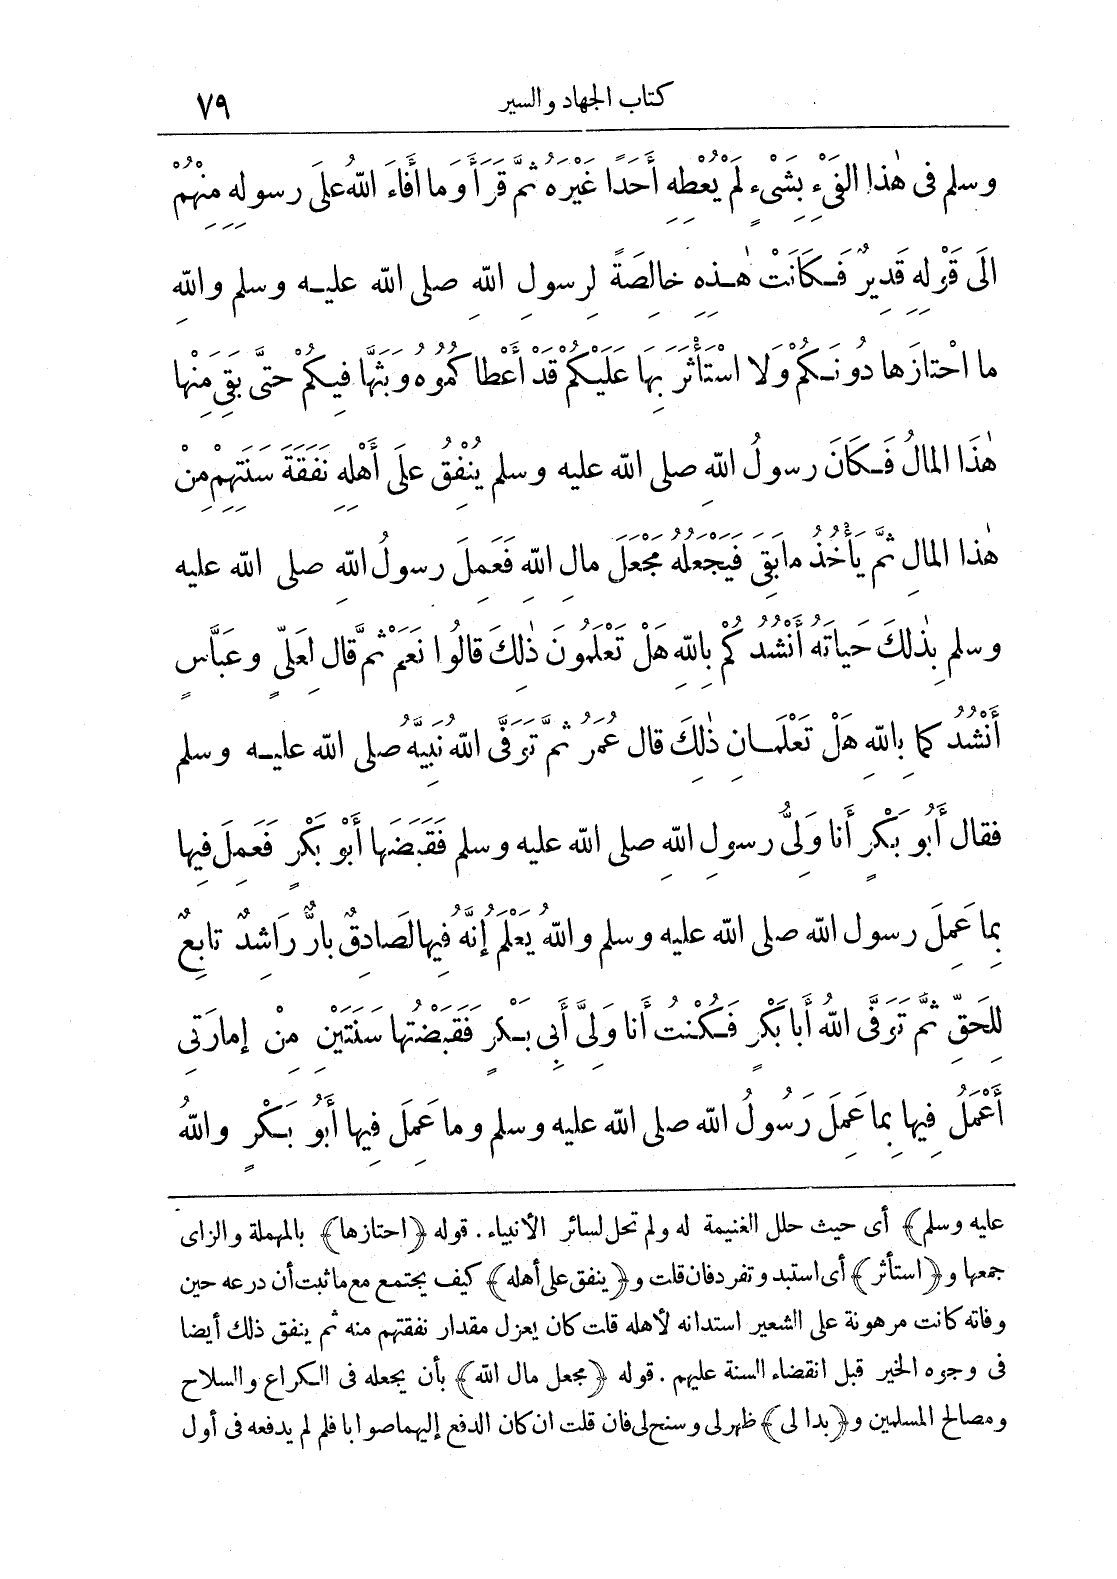 كتاب الجهاد والسير ٧٩
وسلم فى هٰذا الفَىْءِ بِشَىْءٍ لَمْ يُعْطِهِ أَحَدًا غَيْرَهُ ثُمَّ قَرَأَ وَما أَفاءَ اللهُ علَى رسولِهِ مِنْهُمْ
الَى قَوْلِهِ قَدِيرٌ فَكانَتْ هٰذِهِ خالِصَةً لِرسولِ اللهِ صلى الله عليه وسلم واللهِ
ما احْتازَها دُونَكُمْ وَلا اسْتَأْثَرَ بِهَا عَلَيْكُمْ قَدْ أَعْطا كُمُوهُ وَبَثَّها فِيكُمْ حتَّى بَقِىَ مِنْها
هٰذَا المالُ فَكانَ رسولُ اللهِ صلى الله عليه وسلم يُنْفِقُ علَى أَهْلِهِ نَفَقَةَ سَنَتِهِمْ مِنْ
هٰذا المالِ ثُمَّ يَأْخُذُ مابَقِىَ فَيَجْعَلُهُ مَجْعَلَ مالِ اللهِ فَعَمِلَ رسولُ اللهِ صلى الله عليه
وسلم بِذٰلِكَ حَياتَهُ أَنْشُدُ كُمْ بِاللهِ هَلْ تَعْلَمُونَ ذٰلِكَ قالُوا نَعَمْ ثُمَّ قال لِعَلىٍّ وعَبَّاسٍ
أَنْشُدُ كُما بِاللهِ هَلْ تَعْلَمانِ ذٰلِكَ قال عُمَرُ ثُمَّ تَوَفَّى اللهُ نَبِيَّهُ صلى الله عليه وسلم
فقال أَبُو بَكْرٍ أَنا وَلِىُّ رسولِ اللهِ صلى الله عليه وسلم فَقَبَضَها أَبُو بَكْرٍ فَعَمِلَ فِيها
بِما عَمِلَ رسول الله صلى الله عليه وسلم واللهُ يَعْلَمُ إِنَّهُ فِيها لَصَادِقٌ بارٌّ رَاشِدٌ تابِعٌ
لِلْحَقِّ ثُمَّ تَوَفَّى اللهُ أَبا بَكْرٍ فَكُنْتُ أَنا وَلِىَّ أَبِى بَكْرٍ فَقَبَضْتُها سَنَتَيْنِ مِنْ إمارَتِى
أَعْمَلُ فِيها بِما عَمِلَ رَسُولُ الله صلى الله عليه وسلم وما عَمِلَ فِيها أَبُو بَكْرٍ واللهُ
عليه وسلم﴾ أى حيث حلل الغنيمة له ولم تحل لسائر الأنبياء . قوله ﴿احتازها﴾ بالمهملة والزاى
جمعها و﴿استأثر﴾ أى استبد وتفرد فان قلت و﴿ينفق على أهله﴾ كيف يجتمع مع ما ثبت أن درعه حين
وفاته كانت مرهونة على الشعير استدانه لأهله قلت كان يعزل مقدار نفقتهم منه ثم ينفق ذلك أيضا
فى وجوه الخير قبل انقضاء السنة عليهم . قوله ﴿مجعل مال الله﴾ بأن يجعله فى الكراع والسلاح
ومصالح المسلمين و﴿بدا لى﴾ ظهر لى وسنح لى فان قلت ان كان الدفع إليهما صوابا فلم لم يدفعه فى أول